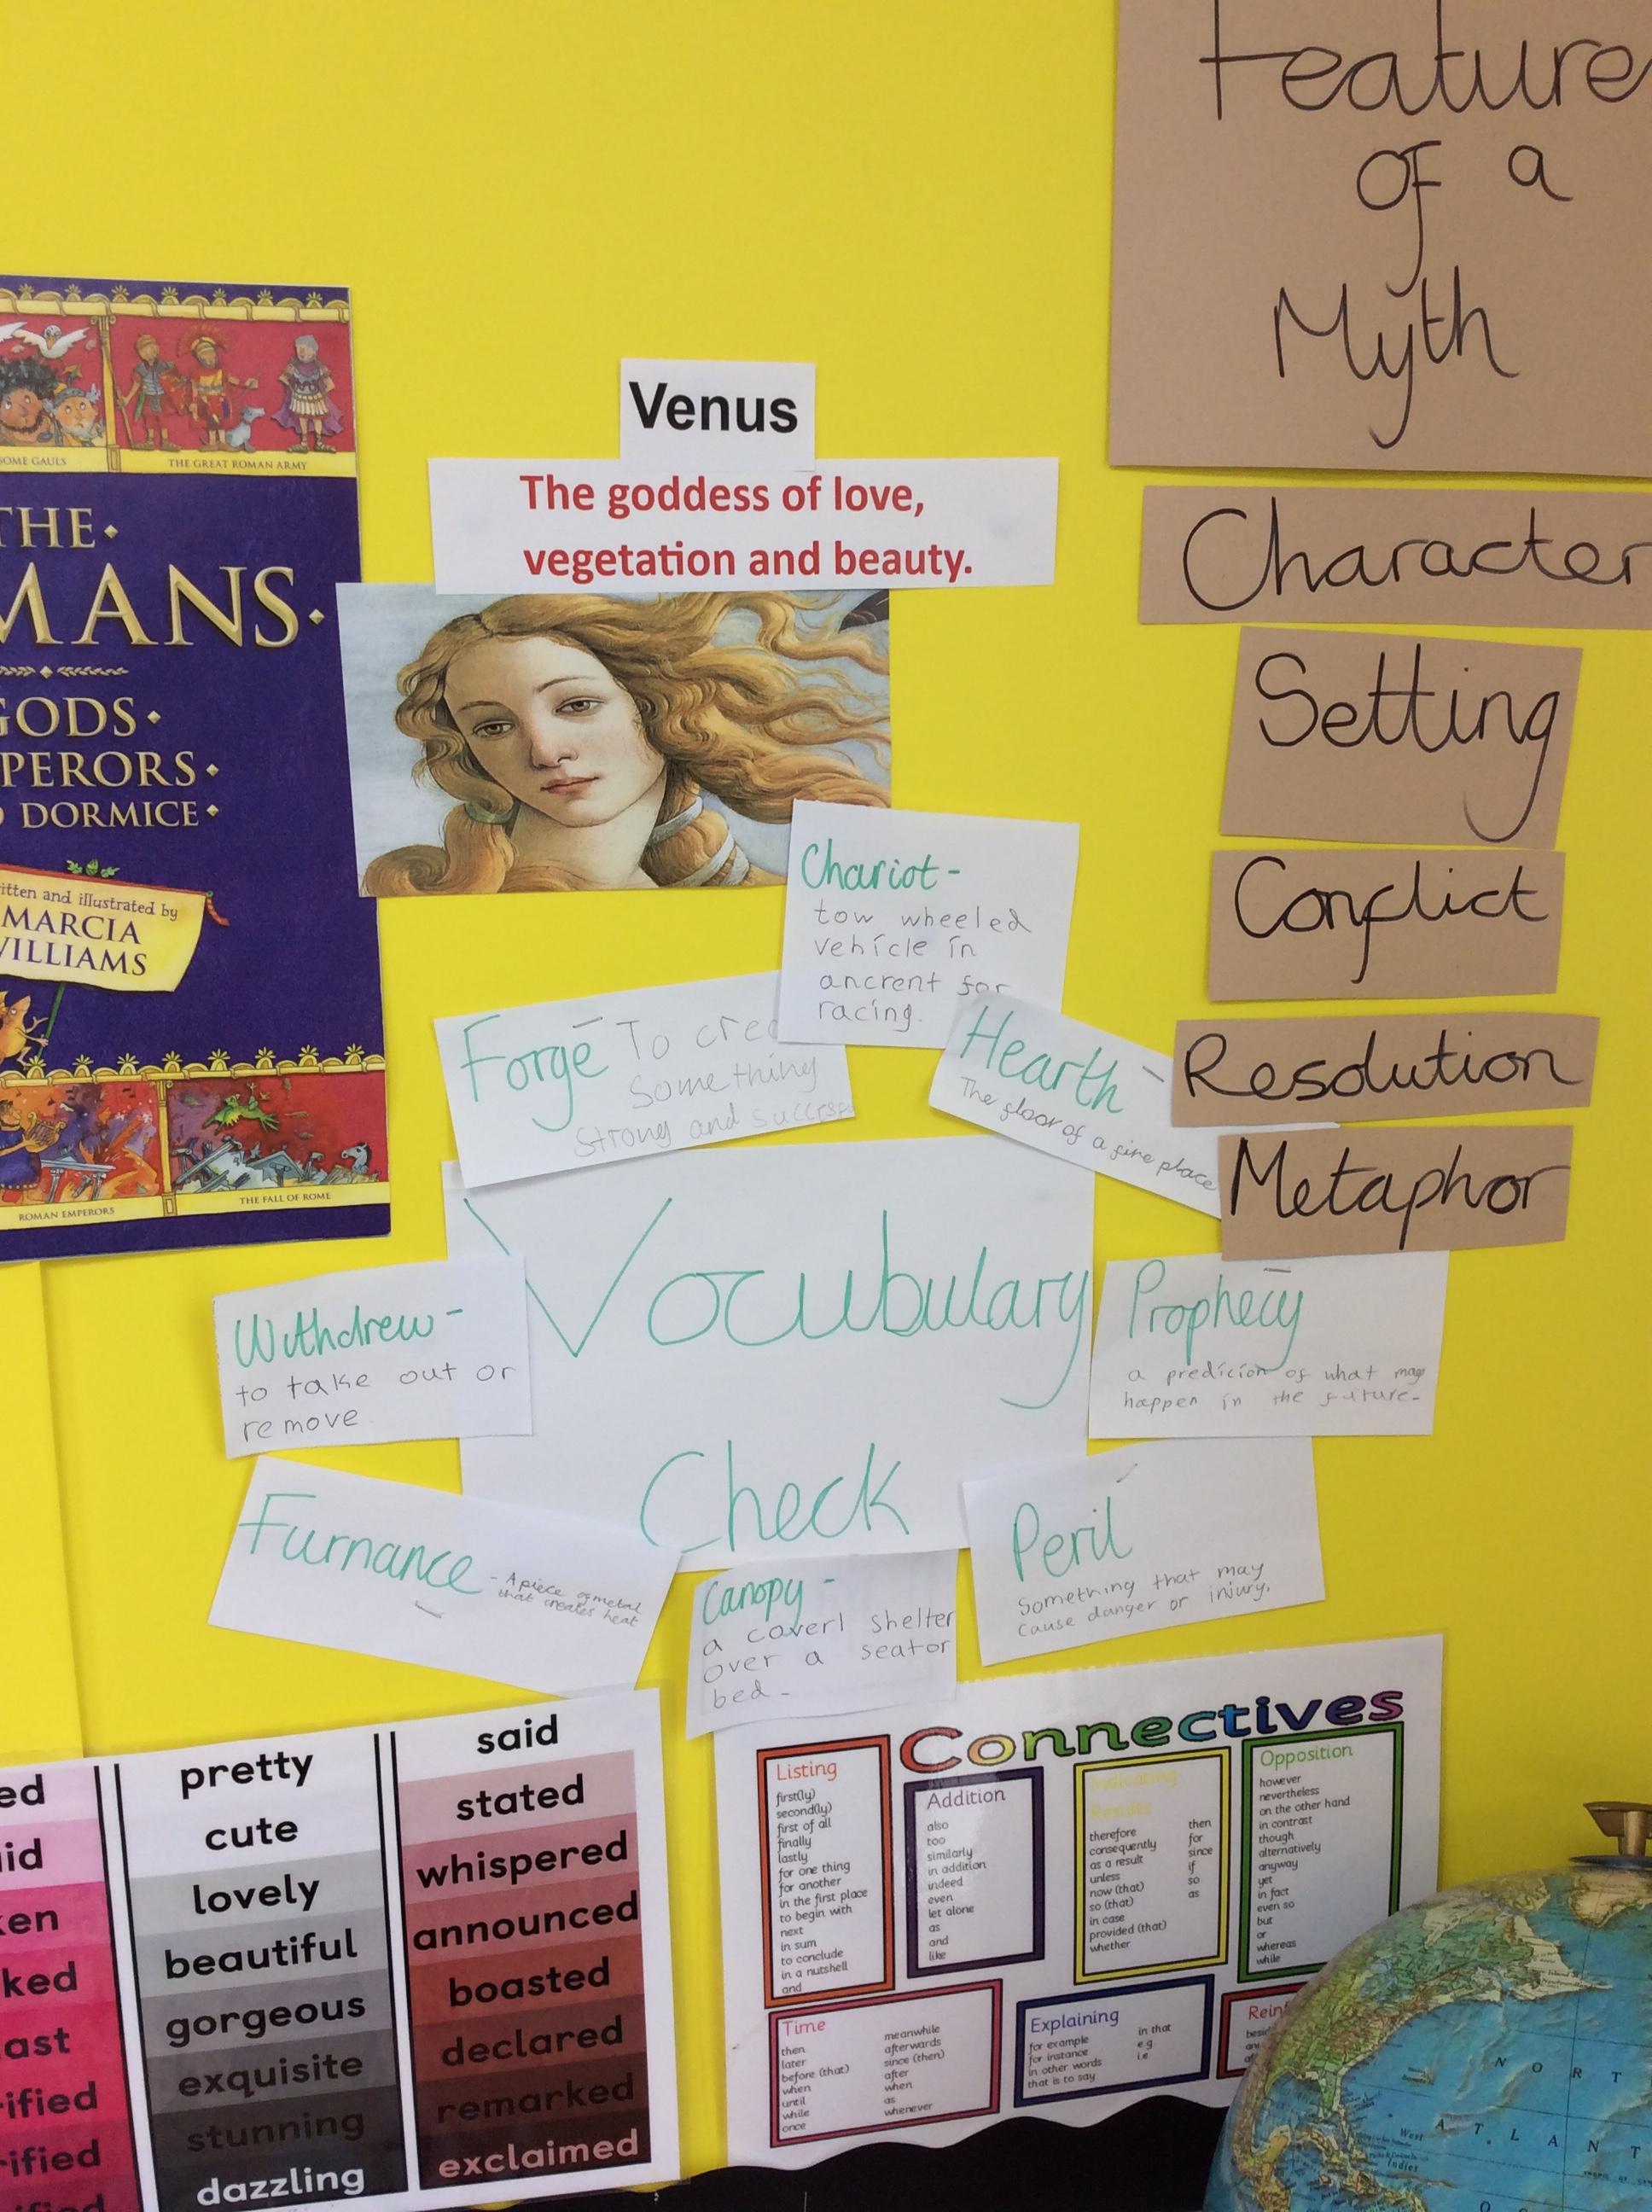 Feature
of a
Myth
Character
Setting
Conflict
Resolution
Metaphor
SOME GAULS
THE GREAT ROMAN ARMY
THE
MANS
GODS
PERORS
DORMICE
itten and illustrated by
MARCIA
WILLIAMS
ROMAN EMPERORS
THE FALL OF ROME
Venus
The goddess of love,
vegetation and beauty.
Chariot-
tow wheeled
vehicle in
ancrent for
racing.
Forge - To crea
Something
Strong and success
Hearth -
The floor of a fire place
Vocubulary
Check
Withdrew -
to take out or
remove
Prophecy -
a predicion of what may
happen in the future.
Furnance - A piece of metal
that creates heat
Canopy -
a coverl shelter
over a seator
bed-
Peril -
Something that may
cause danger or injury.
ed
id
en
ked
ast
ified
ified
ified
pretty
cute
lovely
beautiful
gorgeous
exquisite
stunning
dazzling
said
stated
whispered
announced
boasted
declared
remarked
exclaimed
Connectives
Listing
first(ly)
second(ly)
first of all
finally
lastly
for one thing
for another
in the first place
to begin with
next
in sum
to conclude
in a nutshell
and
Addition
also
too
similarly
in addition
indeed
even
let alone
as
and
like
Indicating
Results
therefore
consequently
as a result
unless
now (that)
so (that)
in case
provided (that)
whether
then
for
since
if
so
as
Opposition
however
nevertheless
on the other hand
in contrast
though
alternatively
anyway
yet
in fact
even so
but
or
whereas
while
Time
then
later
before (that)
when
until
while
once
meanwhile
afterwards
since (then)
after
when
as
whenever
Explaining
for example
for instance
in other words
that is to say
in that
e.g
i.e
Reinf
besi
NORT
ATLANT
West
Indies